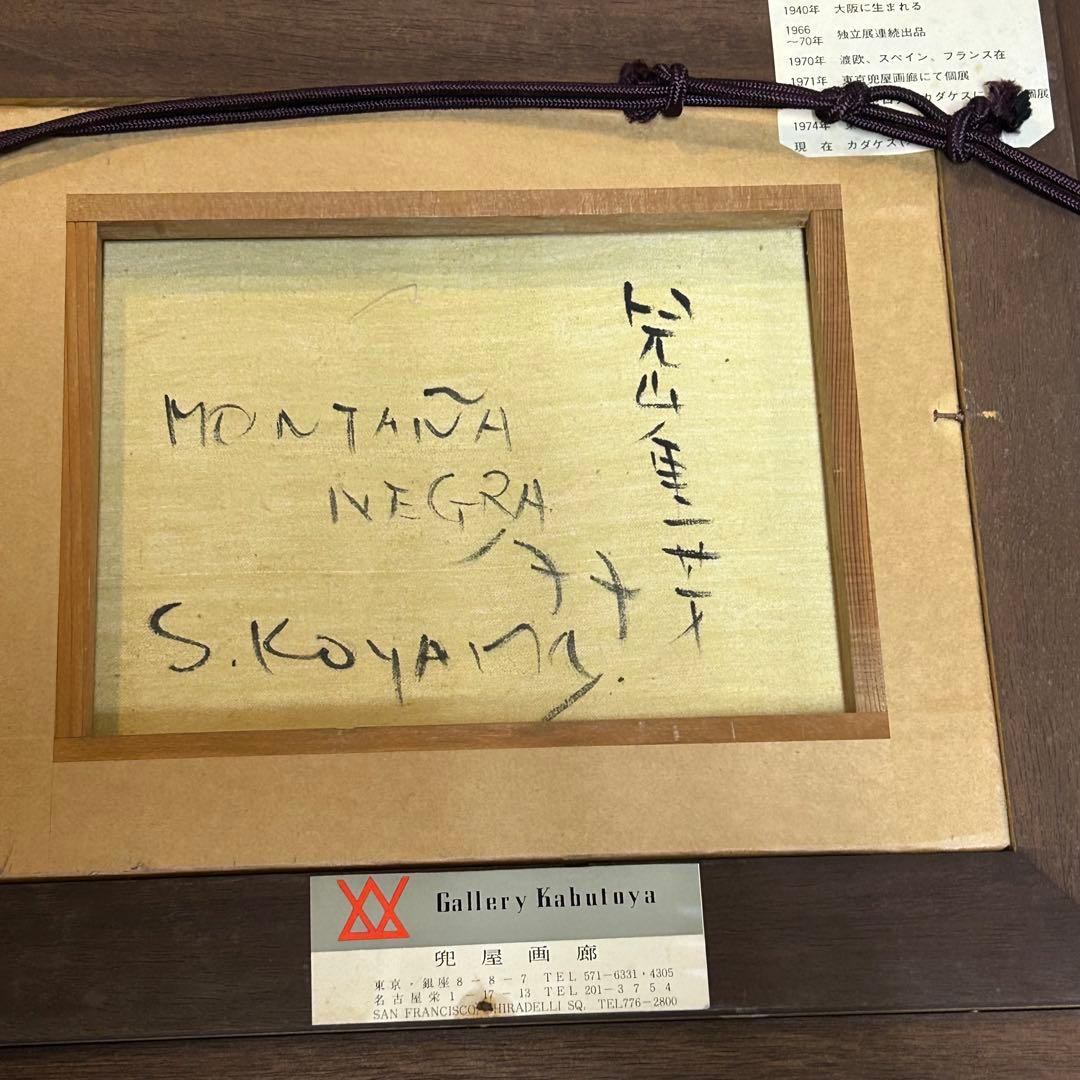 1940年 大阪に生まれる
1966
〜70年 独立展連続出品
1970年 渡欧、スペイン、フランス在
1971年 東京兜屋画廊にて個展
カダケスに 個展
1974年
現 在 カダケス
MONTAÑA
NEGRA
'77
S. KOYAMA.
山
Gallery Kabutoya
兜屋画廊
東京・銀座8-8-7 TEL 571-6331・4305
名古屋栄1 17-13 TEL 201-3754
SAN FRANCISCO HIRADELLI SQ. TEL776-2800